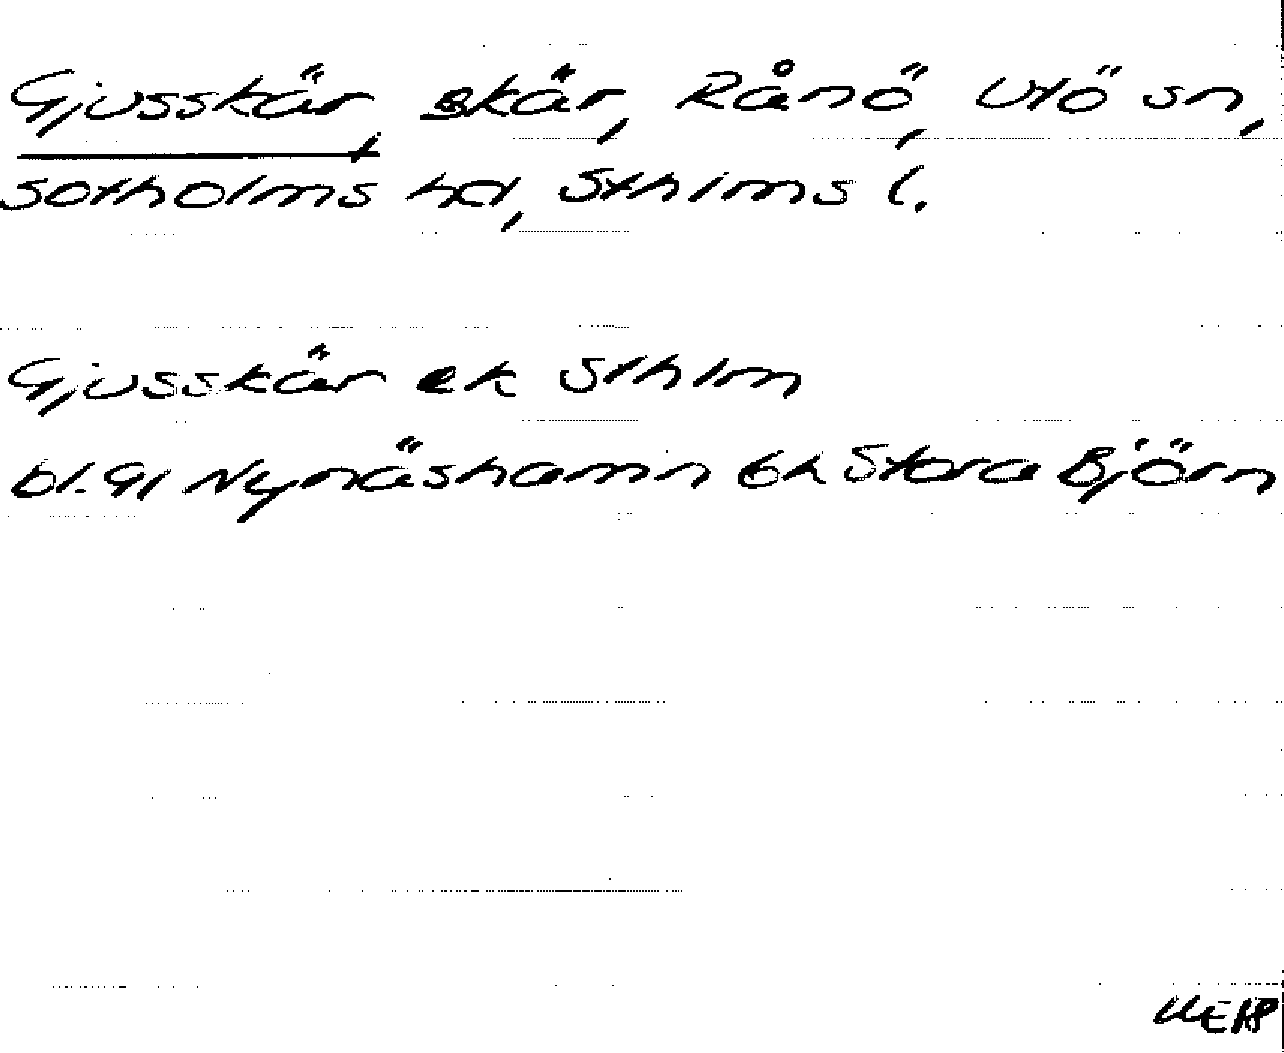 Gjusskär, skär, Rånö, Utö sn,
Sotholms hd, Sthlms l.
Gjusskär ek Sthlm
bl. 91 Nynäshamn bk Stora Björn